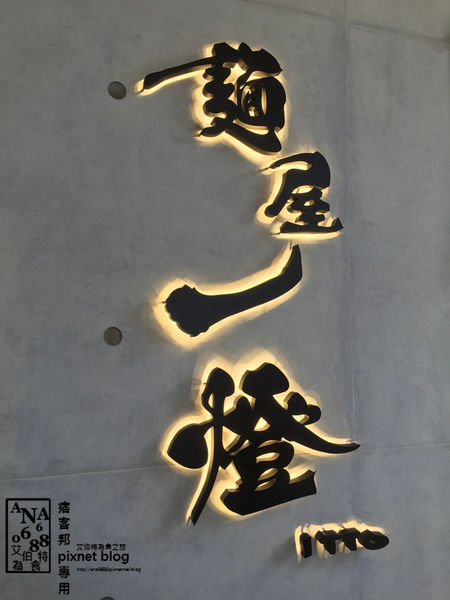 麺屋一燈
1770
ANA
0688
艾伯特
為食
痞客邦專用
艾伯特為食之旅
pixnet blog